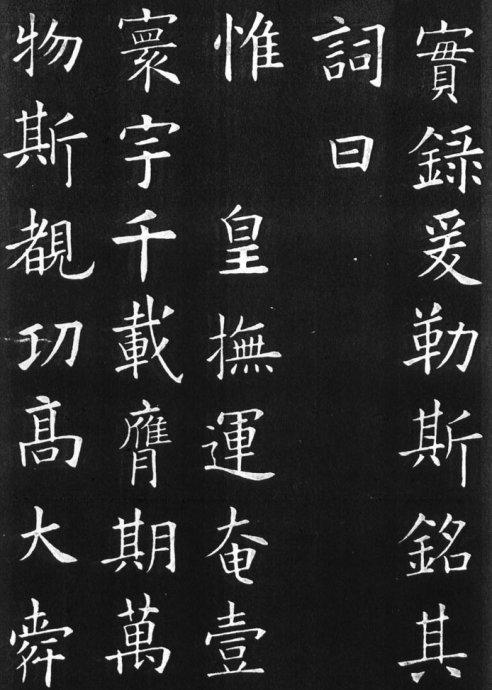 實錄爰勒斯銘其
詞曰
惟皇撫運奄壹
寰宇千載膺期萬
物斯覩功高大舜